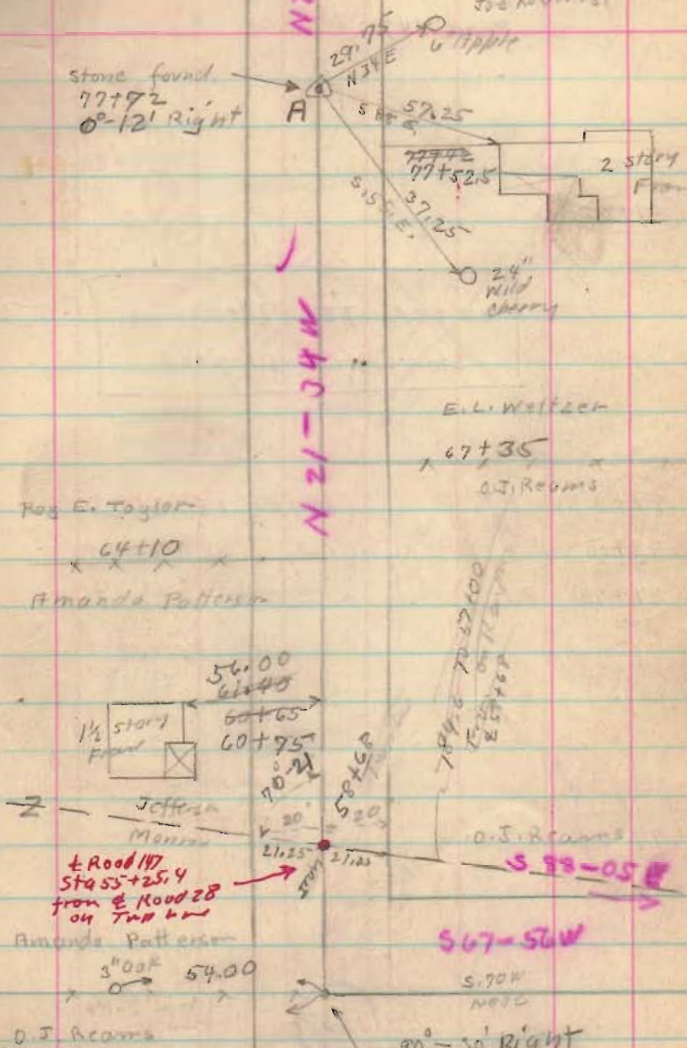 29.75
6" Apple
N 34 E
Stone found
77+72
0°-12' Right
A
57.25
77+42
77+52.5
2 story
Fram
S.55.E.
37.25
24"
Wild
cherry
N 21-34 W
E.L. Weltzer
67+35
O.J. Reams
Roy E. Taylor
64+10
Amanda Patterson
56.00
61.40
60+65
60+75
1½ story
Fram
70°-21'
58+68
20'
20
Z
Jefferson
Monroe
21.25
21.25
O.J. Reams
S. 88-05 E
℄ Road 147
Sta 55+25.4
from ℄ Road 28
on Twp line
Amanda Patterson
S67-56W
3" Oak
54.00
S.70W
O.J. Reams
90°-30' Right